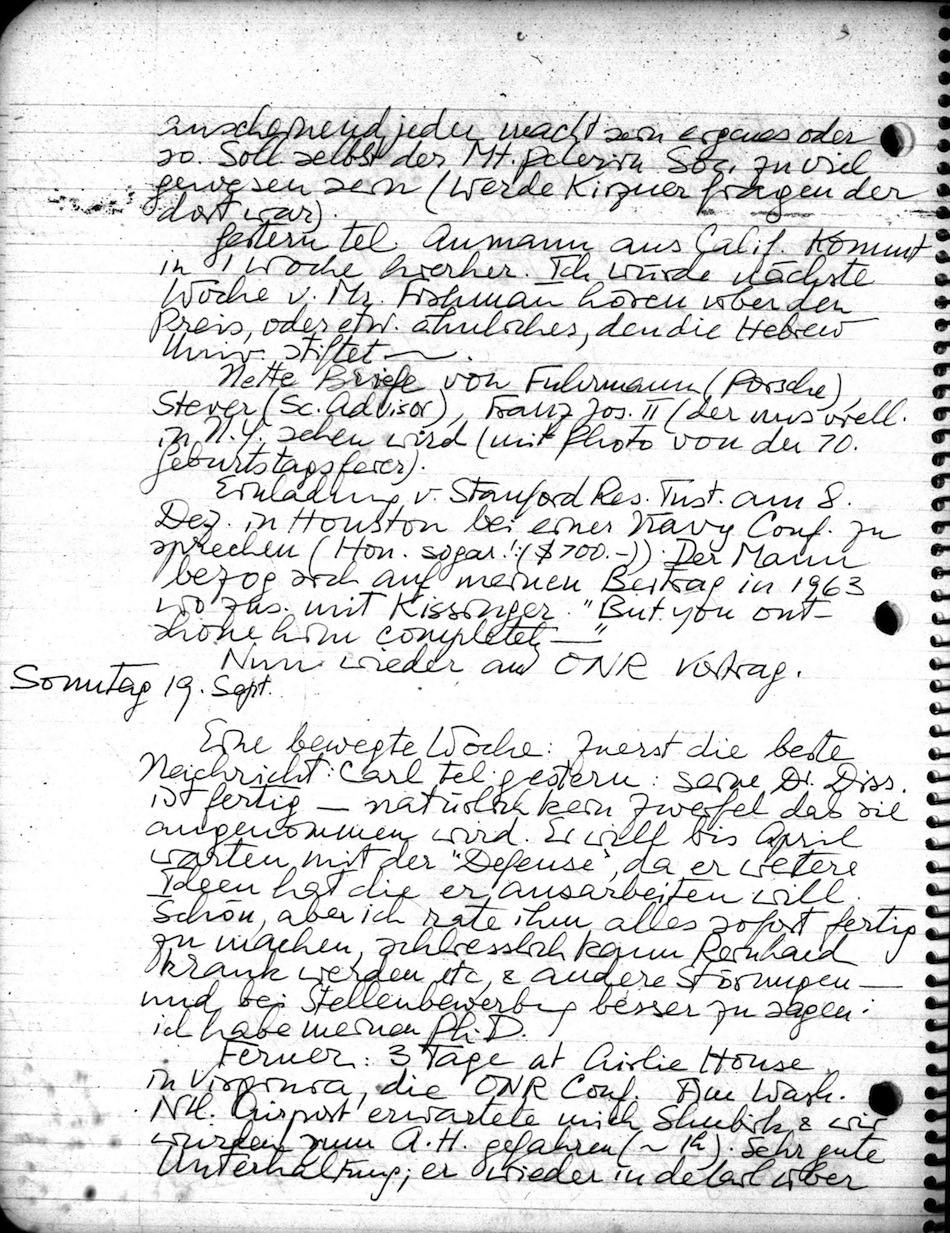 anscheinend jeder macht sein eigenes oder
so. Soll selbst der Mt. Pelerin Soc. zu viel
gewesen sein (werde Kirzner fragen der
dort war).
Gestern tel. Aumann aus Calif. Kommt
in 1 Woche hierher. Ich würde nächste
Woche v. Mr. Fishman hören über den
Preis, oder etw. ähnliches, den die Hebrew
Univ. stiftet —.
Nette Briefe von Fuhrmann (Porsche),
Stever (Sc. Advisor), Franz Jos. II (der uns vzell.
in N.Y. sehen wird (mit Photo von der 70.
Geburtstagsfeier).
Einladung v. Stanford Res. Inst. am 8.
Dez. in Houston bei einer Navy Conf. zu
sprechen (Hon. sogar! ($700.-)). Der Mann
bezog sich auf meinen Beitrag in 1963
wo zus. mit Kissinger. "But you out-
shone him completely —"
Nun wieder an ONR Vortrag.
Sonntag 19. Sept.
Eine bewegte Woche: Zuerst die beste
Nachricht: Carl tel. gestern: seine Dr. Diss.
ist fertig — natürlich kein Zweifel das sie
angenommen wird. Er will bis April
warten mit der "Defense", da er weitere
Ideen hat die er ausarbeiten will.
Schön, aber ich rate ihm alles sofort fertig
zu machen, schliesslich kann Reinhard
krank werden, etc, & andere Störungen —
und bei Stellenbewerbg besser zu sagen:
ich habe meinen Ph.D.
Ferner: 3 Tage at Airlie House
in Virginia, die ONR Conf. Am Wash.
Ntl. Airport erwartete mich Shubik & wir
wurden zum A.H. gefahren (~ 1h). Sehr gute
Unterhaltung; er wieder in detail über